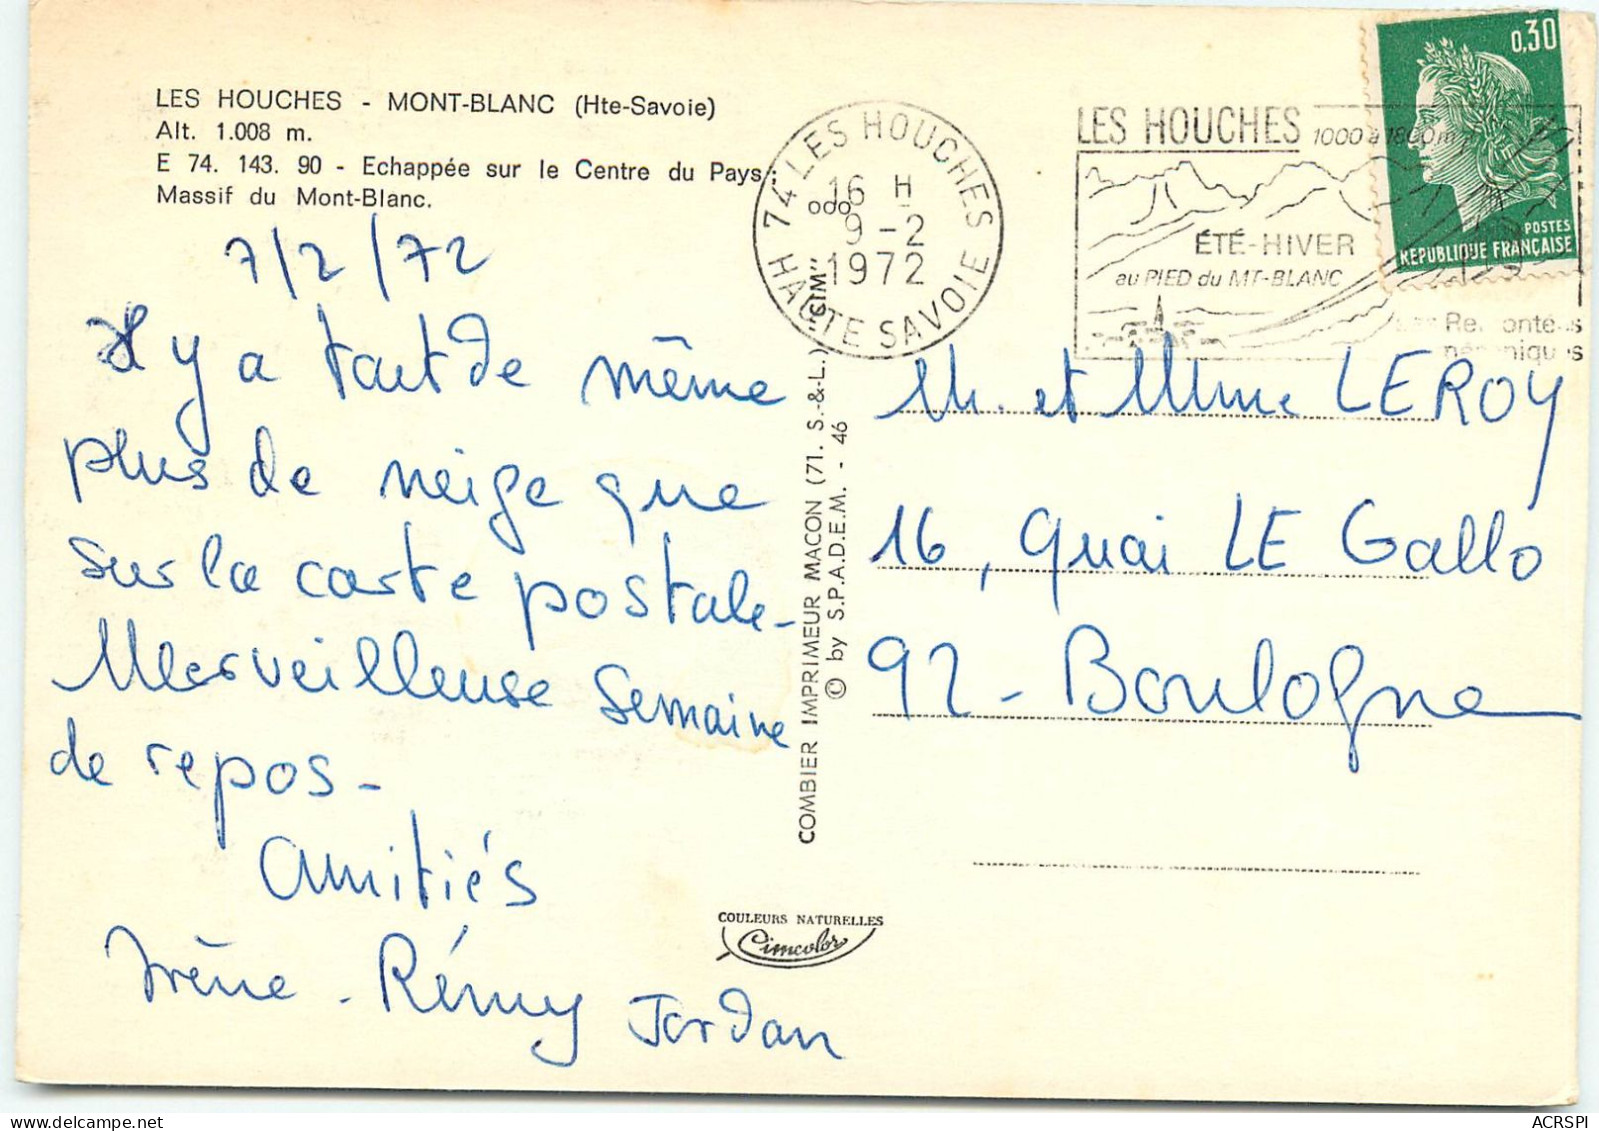 LES HOUCHES - MONT-BLANC (Hte-Savoie)
Alt. 1.008 m.
E 74. 143. 90 - Echappée sur le Centre du Pays.
Massif du Mont-Blanc.
7/2/72
Il y a tout de même
plus de neige que
sur la carte postale -
Merveilleuse semaine
de repos -
Amitiés
Irène - Rémy Jordan
74 LES HOUCHES
16 H
9 - 2
1972
HAUTE SAVOIE
LES HOUCHES 1000 à 1800 m
ÉTÉ-HIVER
au PIED du MT-BLANC
0,30
POSTES
REPUBLIQUE FRANÇAISE
COMBIER IMPRIMEUR MACON (71. S.-&-L.) "CIM"
© by S.P.A.D.E.M. - 46
M. et Mme LEROY
16, Quai LE Gallo
92 - Boulogne
COULEURS NATURELLES
Cimcolor
www.delcampe.net
ACRSPI